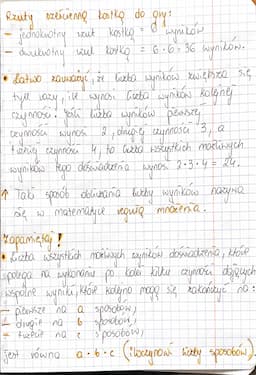 Rzuty sześcienną kostką do gry:
- jednokrotny rzut kostką = 6 wyników
- dwukrotny rzut kostką = 6·6=36 wyników.
• Łatwo zauważyć, że liczba wyników zwiększa się
tyle razy, ile wynosi liczba wyników kolejnej
czynności. Jeśli liczba wyników pierwszej
czynności wynosi 2, drugiej czynności 3, a
trzeciej czynności 4, to liczba wszystkich możliwych
wyników tego doświadczenia wynosi 2·3·4 = 24.
↑ Taki sposób obliczania liczby wyników nazywa
się w matematyce regułą mnożenia.
Zapamiętaj!
• Liczba wszystkich możliwych wyników doświadczenia, które
polega na wykonaniu po kolei kilku czynności dających
wspólne wyniki, które kolejno mogą się zakończyć na:
- pierwsze na a sposobów,
- drugie na b sposobów,
- trzecie na c sposobów,
jest równa a·b·c (iloczynowi liczby sposobów).